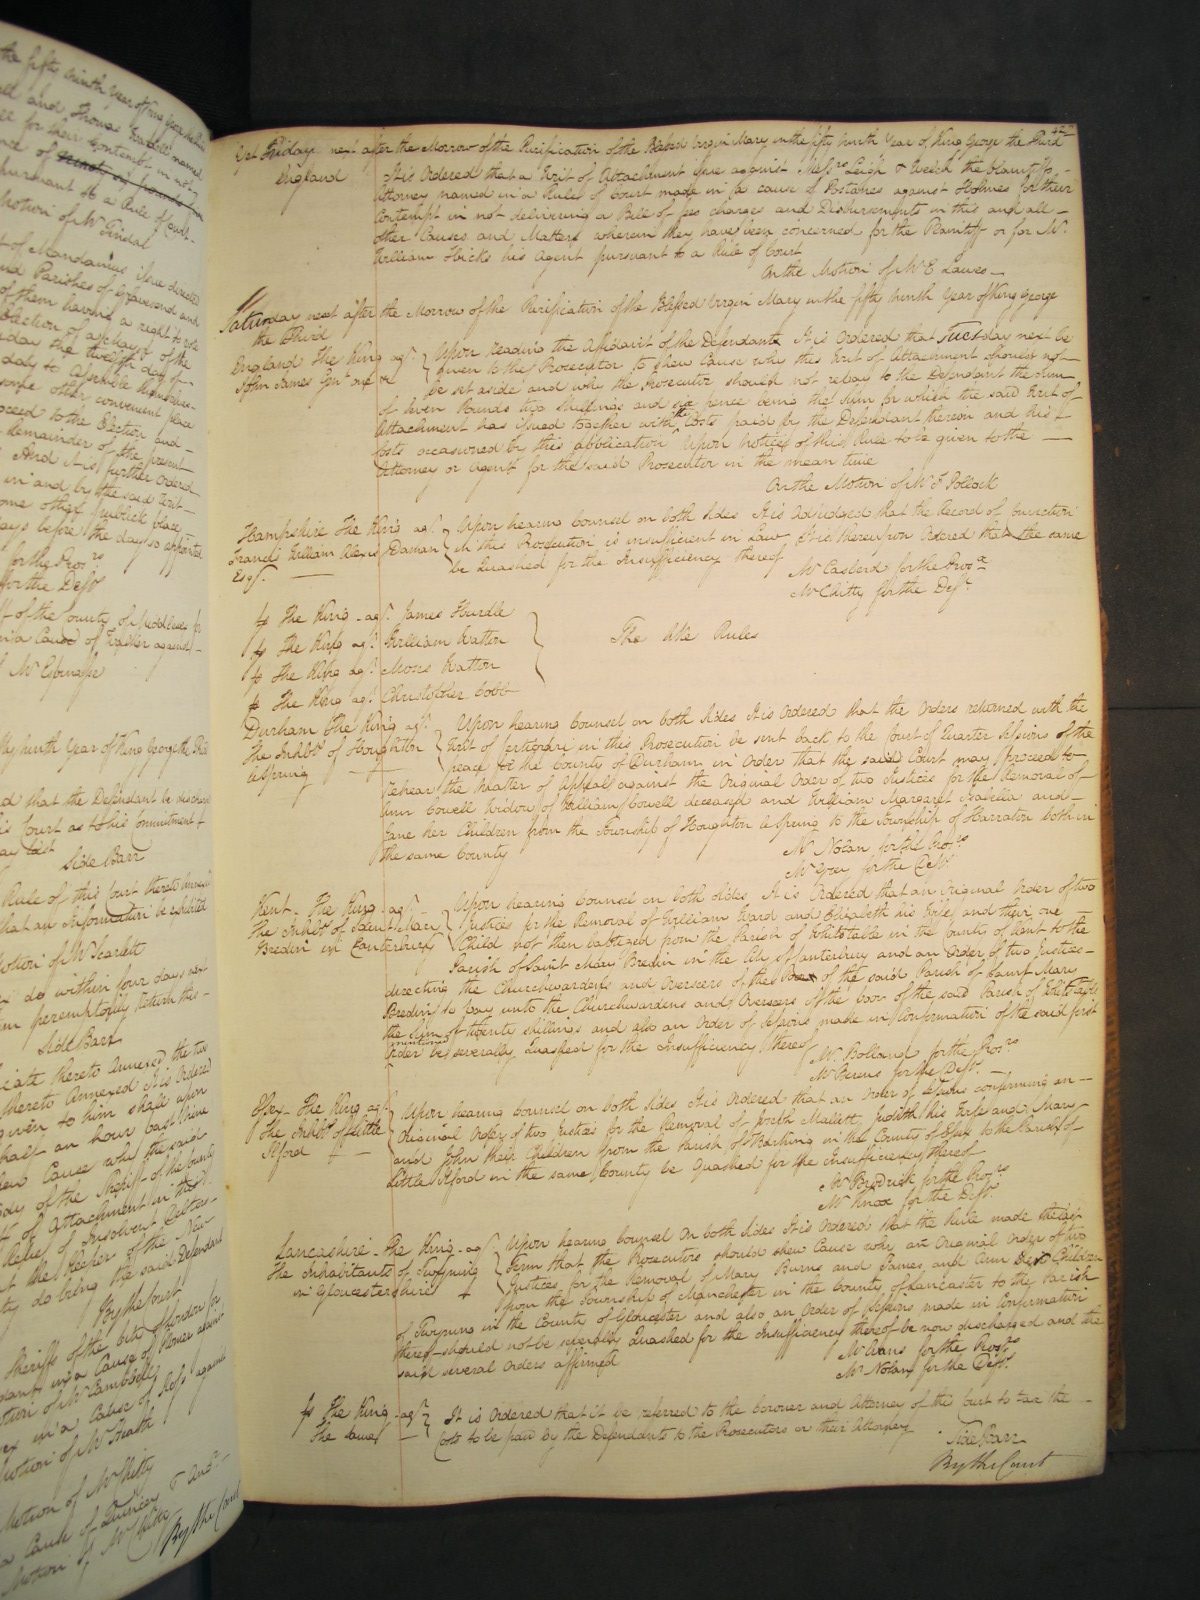 the fifty ninth Year of King George the Third
and Thomas
for their Contempt in not
pursuant to a Rule of Court
Motion of Mr Tindal
of Mandamus issue directed
and Parishes of Gravesend and
of them having a right to vote
Election of a Mayor of the
the twelfth day of
to Assemble themselves
some other convenient place
proceed to the Election and
Remainder of the present
And it is further Ordered
in and by the said Writ
some other publick place
days before the day so appointed
for the Pros.rs
for the Def.t
of the County of Middlesex
in a Cause of against
Mr Espinasse
fifty ninth Year of King George the Third
that the Defendant be discharged
this Court as to his Commitment
Side Barr
Rule of this Court
that an Information be exhibited
Motion of Mr Scarlett
do within four days next
peremptorily return this
Side Barr
thereto Annexed the two
thereto Annexed It is Ordered
given to him shall upon
half an hour past Nine
shew Cause why the said
Body of the Sheriff of the County
of Attachment in this
Relief of Insolvent Debtors
the Keeper of the New
do bring the said Defendant
By the Court
Sheriffs of the City of London for
in a Cause of
Motion of Mr Campbell
in a Cause of against
Motion of Mr Heath
Motion of Mr Chitty
a Cause of Quincey & An.r
Motion of Mr
By the Court
Yet Friday next after the Morrow of the Purification of the Blessed Virgin Mary in the fifty ninth Year of King George the Third
England It is Ordered that a Writ of Attachment issue against Mess.rs Leigh & Welch the Plaintiffs
Attorney named in a Rule of Court made in a cause of Postance against Holmes for their
Contempt in not delivering a Bill of fees charges and Disbursments in this and all
other Causes and Matters wherein they have been concerned for the Plaintiff or for Mr
William Hicks his Agent pursuant to a Rule of Court
On the Motion of Mr E Lawes
Saturday next after the Morrow of the Purification of the Blessed Virgin Mary in the fifty ninth Year of King George
the Third
England The King ag.t Upon reading the Affidavit of the Defendant It is Ordered that Tuesday next be
John James Gen.t one &c given to the Prosecutor to shew Cause why this Writ of Attachment should not
be set aside and why the Prosecutor should not repay to the Defendant the sum
of seven Pounds two shillings and six pence being the sum for which the said Writ of
Attachment has issued together with the Costs paid by the Defendant thereon and his
Costs occasioned by this application Upon notice of this Rule to be given to the
Attorney or Agent for the said Prosecutor in the mean time
On the Motion of Mr F Pollock
Hampshire The King ag.t Upon hearing Counsel on both sides It is Adjudged that the Record of Conviction
Francis William Alexis Daman in this Prosecution is insufficient in Law It is thereupon Ordered that the same
Esq.r be Quashed for the Insufficiency thereof
Mr Casberd for the Pros.r
Mr Chitty for the Def.t
fs The King ag.t James Hurdle
fs The King ag.t William Watton
fs The King ag.t Moses Watton
fs The King ag.t Christopher Cobb
The like Rules
Durham The King ag.t Upon hearing Counsel on both sides It is Ordered that the Orders returned with the
The Inhab.ts of Houghton Writ of Certiorari in this Prosecution be sent back to the Court of Quarter Sessions of the
le Spring peace for the County of Durham in Order that the said Court may proceed to
rehear the Matter of Appeal against the Original Order of two Justices for the Removal of
Ann Cowell Widow of William Cowell deceased and William Margaret Isabella and
Jane her Children from the Township of Houghton le Spring to the Township of Harraton both in
the same County
Mr Nolan for the Pros.rs
Mr for the Def.ts
Kent The King ag.t Upon hearing Counsel on both sides It is Ordered that an Original Order of two
The Inhab.ts of Saint Mary Justices for the Removal of William Ward and Elizabeth his Wife and their one
Bredin in Canterbury Child not then baptized from the Parish of Whitstable in the County of Kent to the
Parish of Saint Mary Bredin in the City of Canterbury and an Order of two Justices
directing the Churchwardens and Overseers of the Poor of the said Parish of Saint Mary
Bredin to pay unto the Churchwardens and Overseers of the Poor of the said Parish of Whitstable
the Sum of twenty shillings and also an Order of Sessions made in Confirmation of the said first
mentioned
Order be severally Quashed for the Insufficiency thereof
Mr Bolland for the Pros.rs
Mr Berens for the Def.ts
Essex The King ag.t Upon hearing Counsel on both sides It is Ordered that an Order of Sessions confirming an
The Inhab.ts of Little Original Order of two Justices for the Removal of Joseph Mallett Judith his Wife and Mary
Ilford and John their Children from the Parish of Barking in the County of Essex to the Parish of
Little Ilford in the same County be Quashed for the Insufficiency thereof
Mr Brodrick for the Pros.rs
Mr Knox for the Def.ts
Lancashire The King ag.t Upon hearing Counsel On both sides It is Ordered that the Rule made the last
The Inhabitants of Twyning Term that the Prosecutors should shew Cause why an Original Order of two
in Gloucestershire Justices for the Removal of Mary Burns and James and Ann her Children
from the Township of Manchester in the County of Lancaster to the Parish
of Twyning in the County of Gloucester and also an Order of Sessions made in Confirmation
thereof should not be severally Quashed for the Insufficiency thereof be now discharged and the
said several Orders affirmed
Mr Evans for the Pros.rs
Mr Nolan for the Def.ts
fs The King ag.t It is Ordered that it be referred to the Coroner and Attorney of this Court to tax the
The same Costs to be paid by the Defendants to the Prosecutors or their Attorney
Side Barr
By the Court